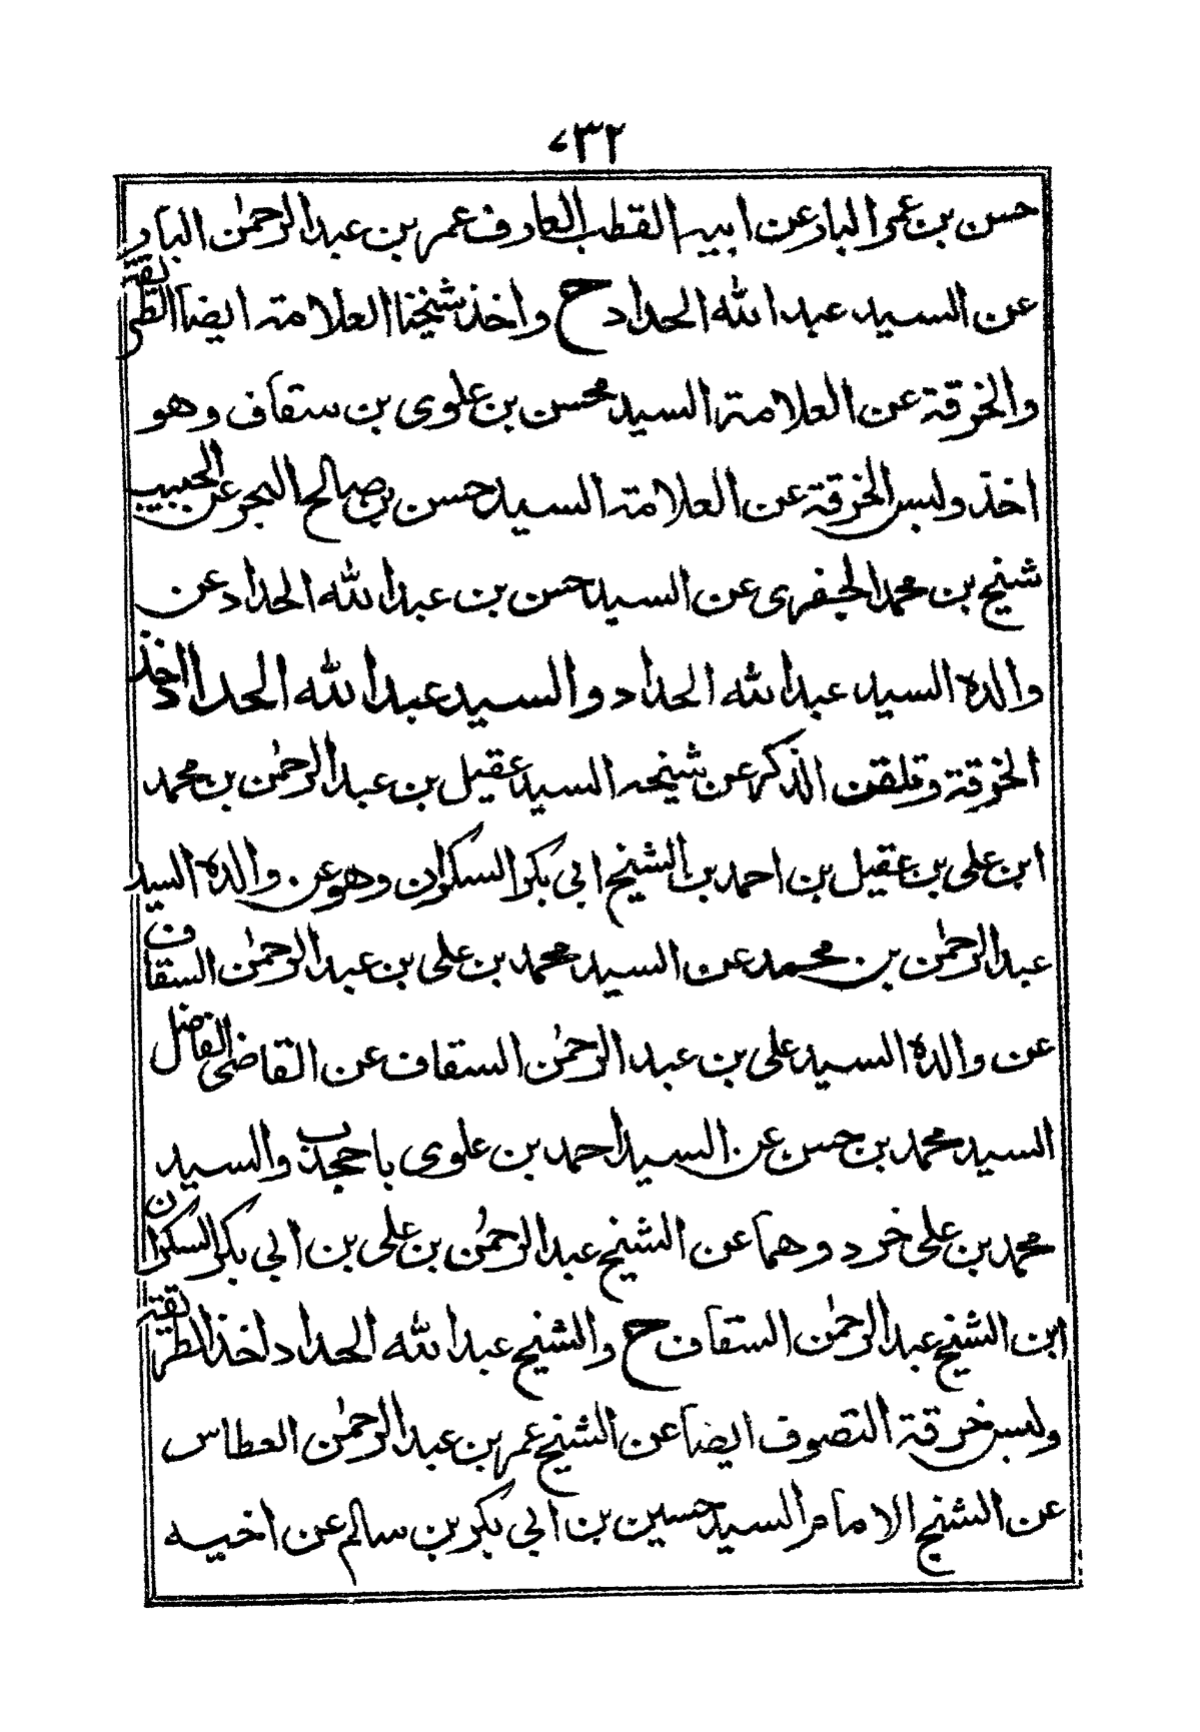 ٧٣٢
حسن بن عمر البار عن ابيه القطب العارف عمر بن عبد الرحمٰن البار
عن السيد عبد الله الحداد ح واخذ شيخنا العلامة ايضا الطريقة
والخرقة عن العلامة السيد محسن بن علوى بن سقاف وهو
اخذ ولبس الخرقة عن العلامة السيد حسن بن صالح البحر عن الحبيب
شيخ بن محمد الجفرى عن السيد حسن بن عبد الله الحداد عن
والده السيد عبد الله الحداد والسيد عبد الله الحداد اخذ
الخرقة وتلقن الذكر عن شيخه السيد عقيل بن عبد الرحمٰن بن محمد
ابن على بن عقيل بن احمد بن الشيخ ابى بكر السكران وهو عن والده السيد
عبد الرحمٰن بن محمد عن السيد محمد بن على بن عبد الرحمٰن السقاف
عن والده السيد على بن عبد الرحمٰن السقاف عن القاضى الفاضل
السيد محمد بن حسن عن السيد احمد بن علوى باجحدب والسيد
محمد بن على خرد وهما عن الشيخ عبد الرحمٰن بن على بن ابى بكر السكران
ابن الشيخ عبد الرحمٰن السقاف ح والشيخ عبد الله الحداد اخذ الطريقة
ولبس خرقة التصوف ايضا عن الشيخ عمر بن عبد الرحمٰن العطاس
عن الشيخ الامام السيد حسين بن ابى بكر بن سالم عن اخيه